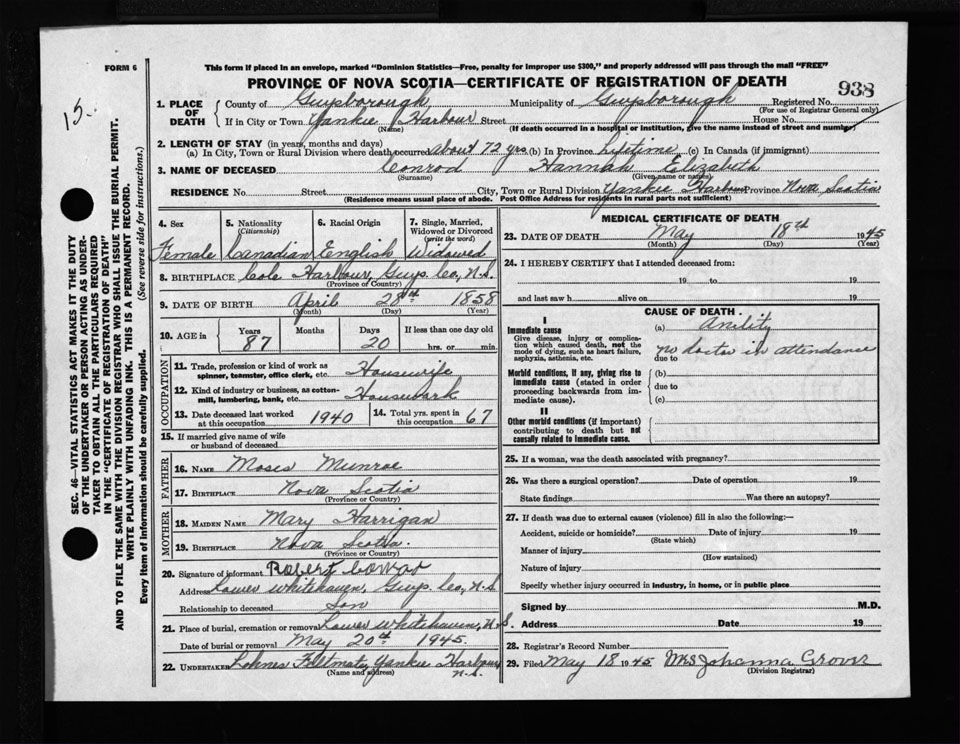 FORM 6
This form if placed in an envelope, marked "Dominion Statistics—Free, penalty for improper use $300," and properly addressed will pass through the mail "FREE"
PROVINCE OF NOVA SCOTIA—CERTIFICATE OF REGISTRATION OF DEATH
938
15.
1. PLACE OF DEATH
County of Guysborough Municipality of Guysborough Registered No.
(For use of Registrar General only)
If in City or Town Yankie Harbour Street House No.
(Name) (If death occurred in a hospital or institution, give the name instead of street and number)
2. LENGTH OF STAY (in years, months and days)
(a) In City, Town or Rural Division where death occurred about 72 yrs (b) In Province Lifetime (c) In Canada (if immigrant)
3. NAME OF DECEASED Conrod Hannah Elizabeth
(Surname) (Given name or names)
RESIDENCE No. Street City, Town or Rural Division Yankie Harbour Province Nova Scotia
(Residence means usual place of abode. Post Office Address for residents in rural parts not sufficient)
4. Sex 5. Nationality (Citizenship) 6. Racial Origin 7. Single, Married, Widowed or Divorced (write the word)
Female Canadian English Widowed
8. BIRTHPLACE Cole Harbour, Guys. Co, N.S.
(Province or Country)
9. DATE OF BIRTH April 28th 1858
(Month) (Day) (Year)
10. AGE in Years Months Days If less than one day old
87 20 hrs. or min.
OCCUPATION
11. Trade, profession or kind of work as spinner, teamster, office clerk, etc. Housewife
12. Kind of industry or business, as cotton-mill, lumbering, bank, etc. Housework
13. Date deceased last worked at this occupation 1940 14. Total yrs. spent in this occupation 67
15. If married give name of wife or husband of deceased
FATHER
16. NAME Moses Munroe
17. BIRTHPLACE Nova Scotia
(Province or Country)
MOTHER
18. MAIDEN NAME Mary Harrigan
19. BIRTHPLACE Nova Scotia.
(Province or Country)
20. Signature of informant Robert
Address Lower Whitehaven, Guys. Co, N.S.
Relationship to deceased Son
21. Place of burial, cremation or removal Lower Whitehaven, N.S.
Date of burial or removal May 20th 1945.
22. UNDERTAKER Yankie Harbour
(Name and address) N.S.
MEDICAL CERTIFICATE OF DEATH
23. DATE OF DEATH May 18th 1945
(Month) (Day) (Year)
24. I HEREBY CERTIFY that I attended deceased from:
19 to 19
and last saw h alive on 19
CAUSE OF DEATH
I
Immediate cause (a) Anility
Give disease, injury or complication which caused death, not the mode of dying, such as heart failure, asphyxia, asthenia, etc.
due to no doctor in attendance
Morbid conditions, if any, giving rise to immediate cause (stated in order proceeding backwards from immediate cause).
(b)
due to
(c)
II
Other morbid conditions (if important) contributing to death but not causally related to immediate cause.
25. If a woman, was the death associated with pregnancy?
26. Was there a surgical operation? Date of operation 19
State findings Was there an autopsy?
27. If death was due to external causes (violence) fill in also the following:—
Accident, suicide or homicide? Date of injury 19
(State which)
Manner of injury
(How sustained)
Nature of injury
Specify whether injury occurred in industry, in home, or in public place
Signed by M.D.
Address Date 19
28. Registrar's Record Number
29. Filed May 18 1945 Mrs Johanna Grover
(Division Registrar)
SEC. 46—VITAL STATISTICS ACT MAKES IT THE DUTY
OF THE UNDERTAKER OR PERSON ACTING AS UNDER-
TAKER TO OBTAIN ALL THE PARTICULARS REQUIRED
IN THE "CERTIFICATE OF REGISTRATION OF DEATH"
AND TO FILE THE SAME WITH THE DIVISION REGISTRAR WHO SHALL ISSUE THE BURIAL PERMIT.
WRITE PLAINLY WITH UNFADING INK. THIS IS A PERMANENT RECORD.
Every item of information should be carefully supplied. (See reverse side for instructions.)